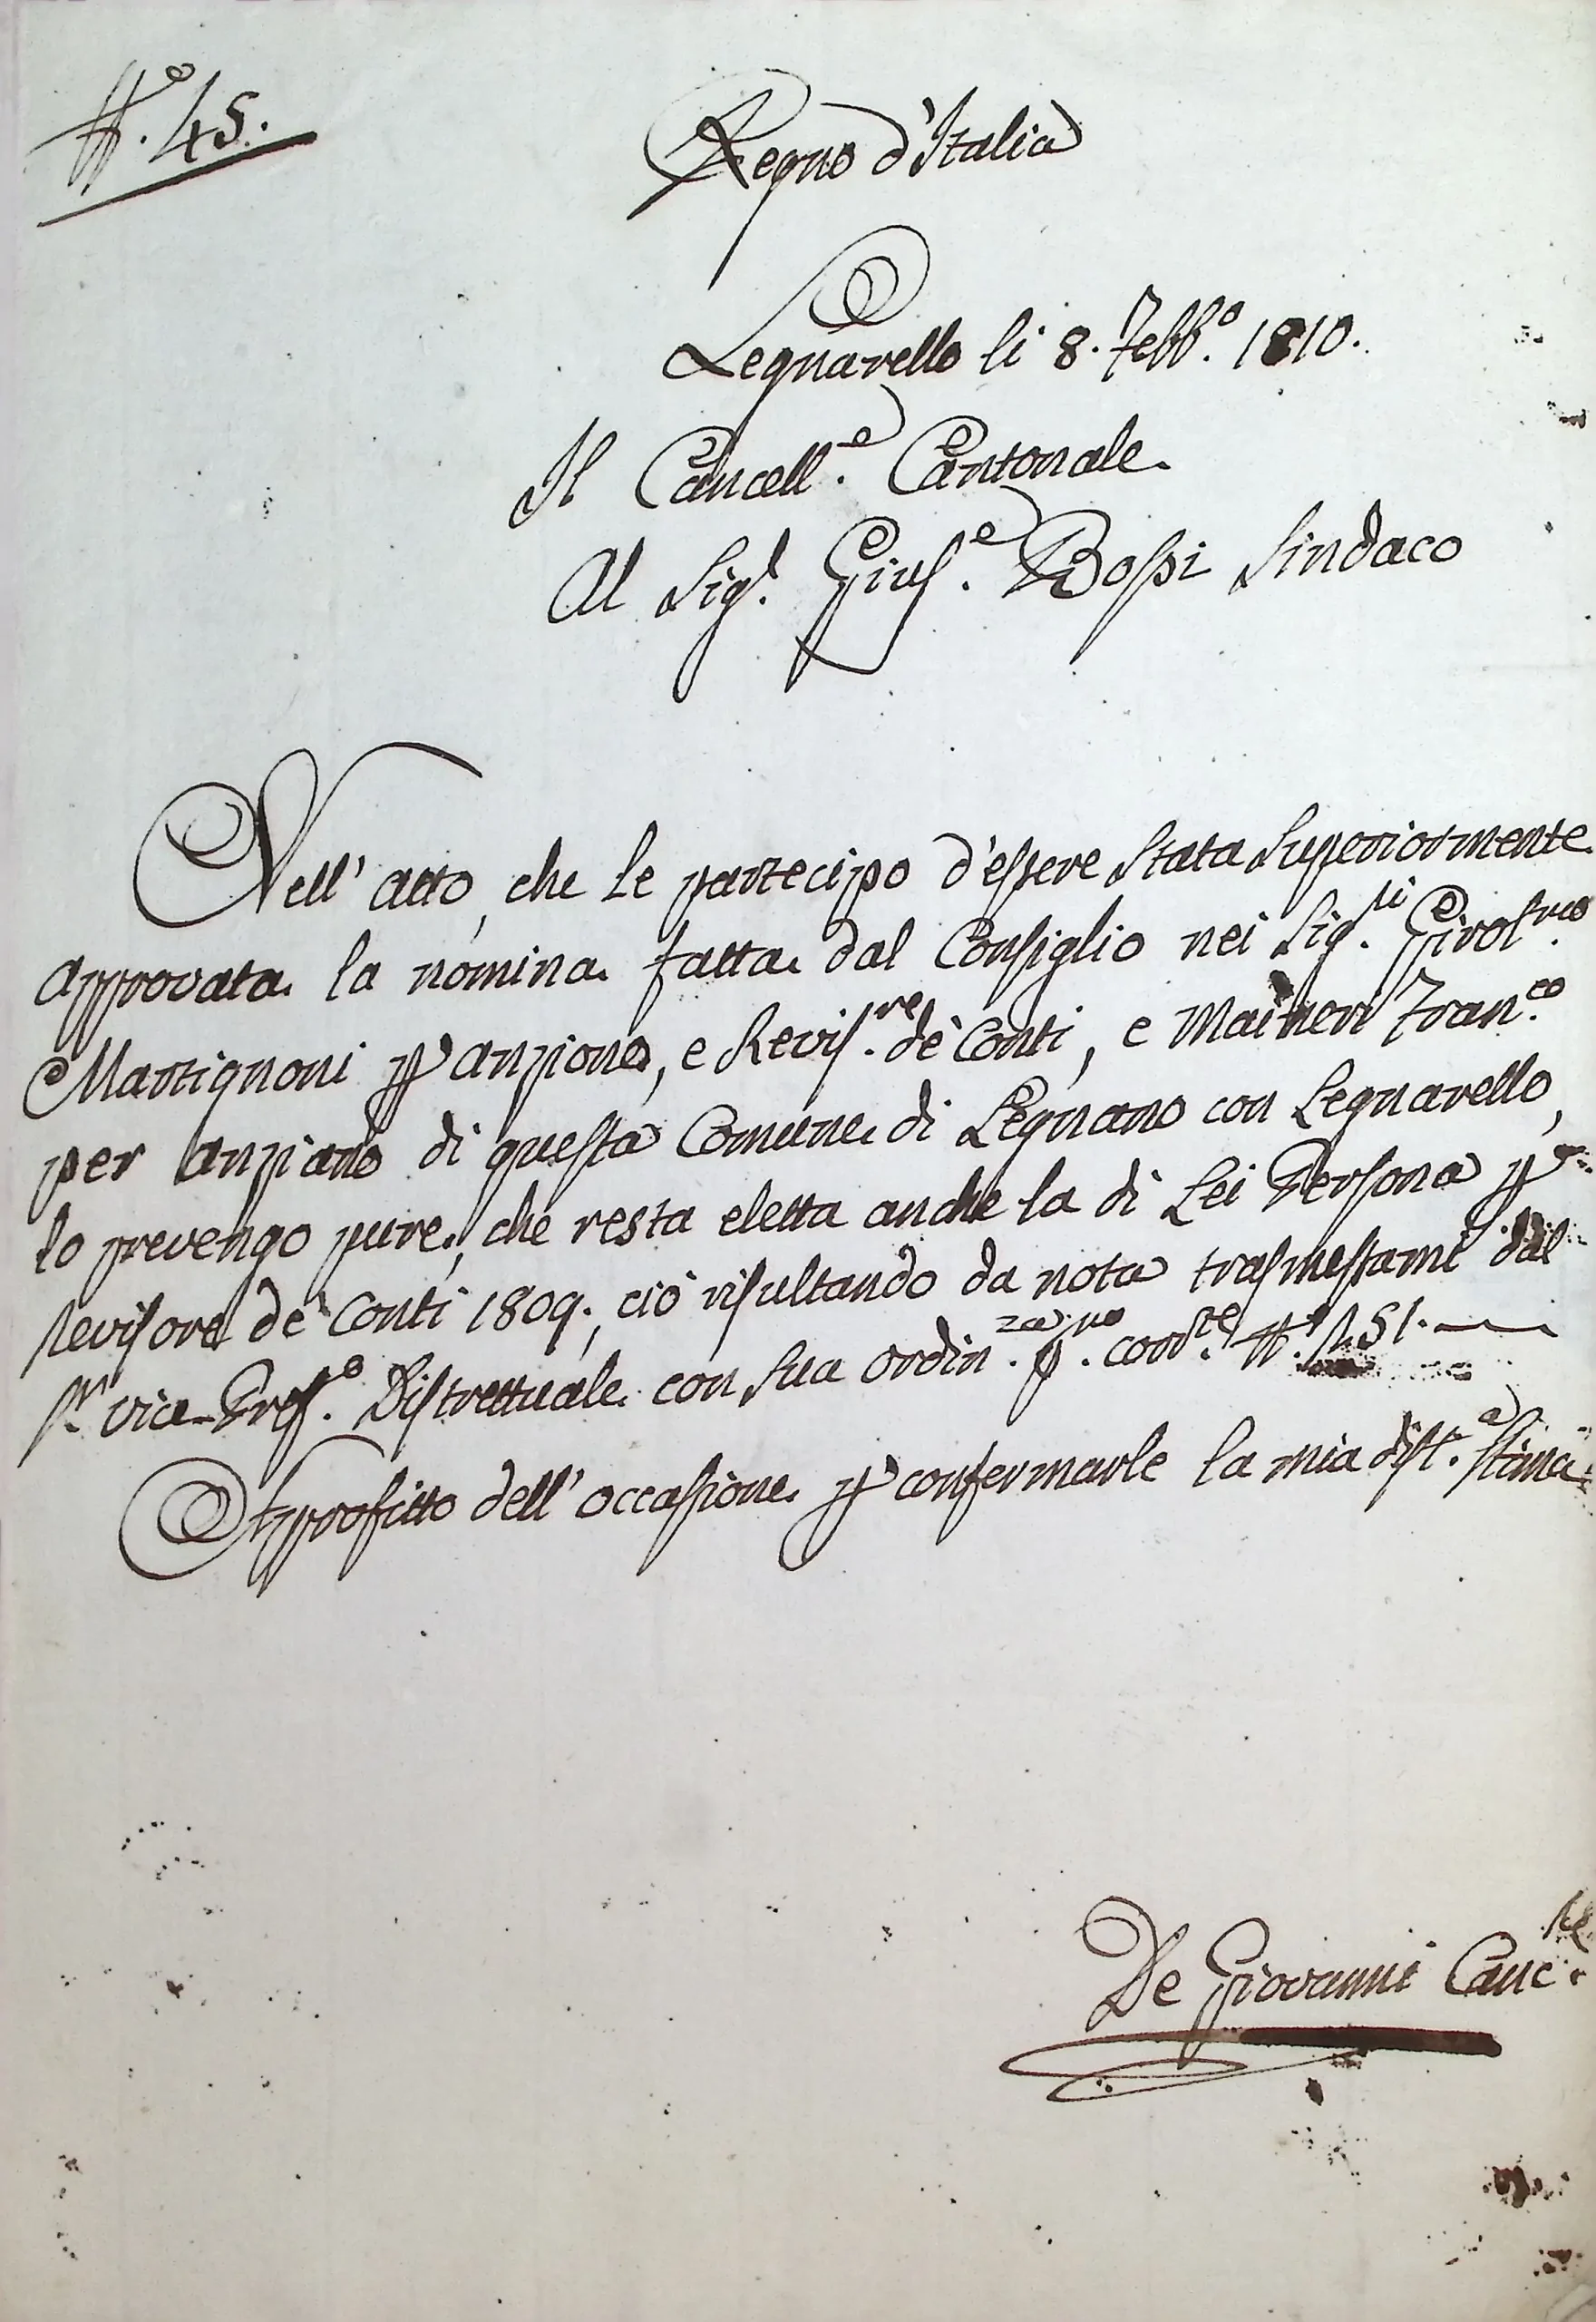 N.o 45.
Regno d'Italia
Legnarello li 8. Febb.o 1810.
Il Cancell.e Cantonale.
Al Sig.r Gius.e Bossi Sindaco
Nell' atto, che le partecipo d'essere stata superiormente
approvata la nomina fatta dal Consiglio nei Sig.ri Girol.mo
Martignoni p anziano, e Revis.re dè Conti, e Maineri Fran.co
per anziano di questa Comune di Legnano con Legnarello,
lo prevengo pure, che resta eletta anche la di Lei Persona p
revisore dè Conti 1809., ciò risultando da nota trasmessami dal
S.r vice-Pref.o Distrettuale con sua ordin.za p.mo corr.te N.o 251.
Approfitto dell' occasione p confermarle la mia dist.a stima
De Giovanni Canc.re